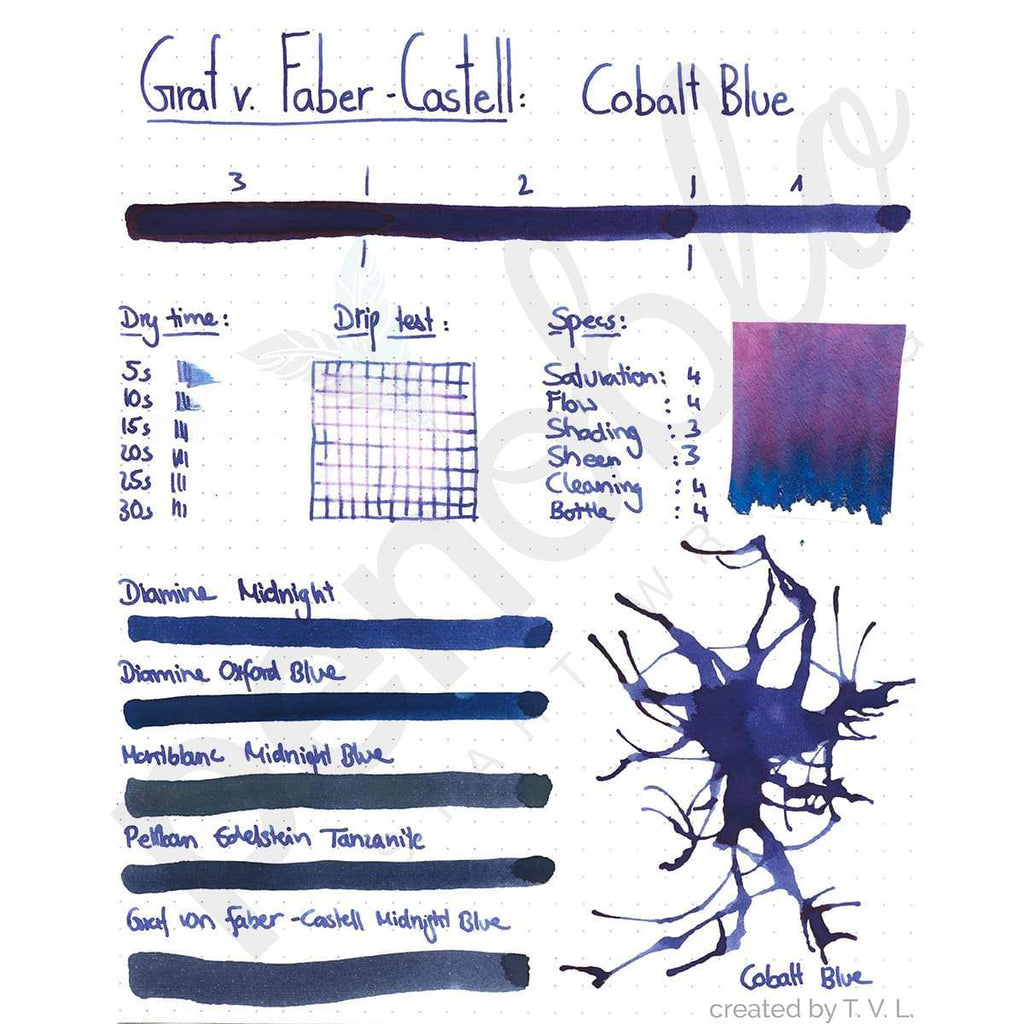 Graf v. Faber-Castell: Cobalt Blue
3 | 2 | 1
| |
Dry time: Drip test: Specs:
5s
10s
15s
20s
25s
30s
Saturation: 4
Flow : 4
Shading : 3
Sheen : 3
Cleaning : 4
Bottle : 4
Diamine Midnight
Diamine Oxford Blue
Montblanc Midnight Blue
Pelikan Edelstein Tanzanite
Graf von Faber-Castell Midnight Blue
Cobalt Blue
created by T. V. L.
penoblo